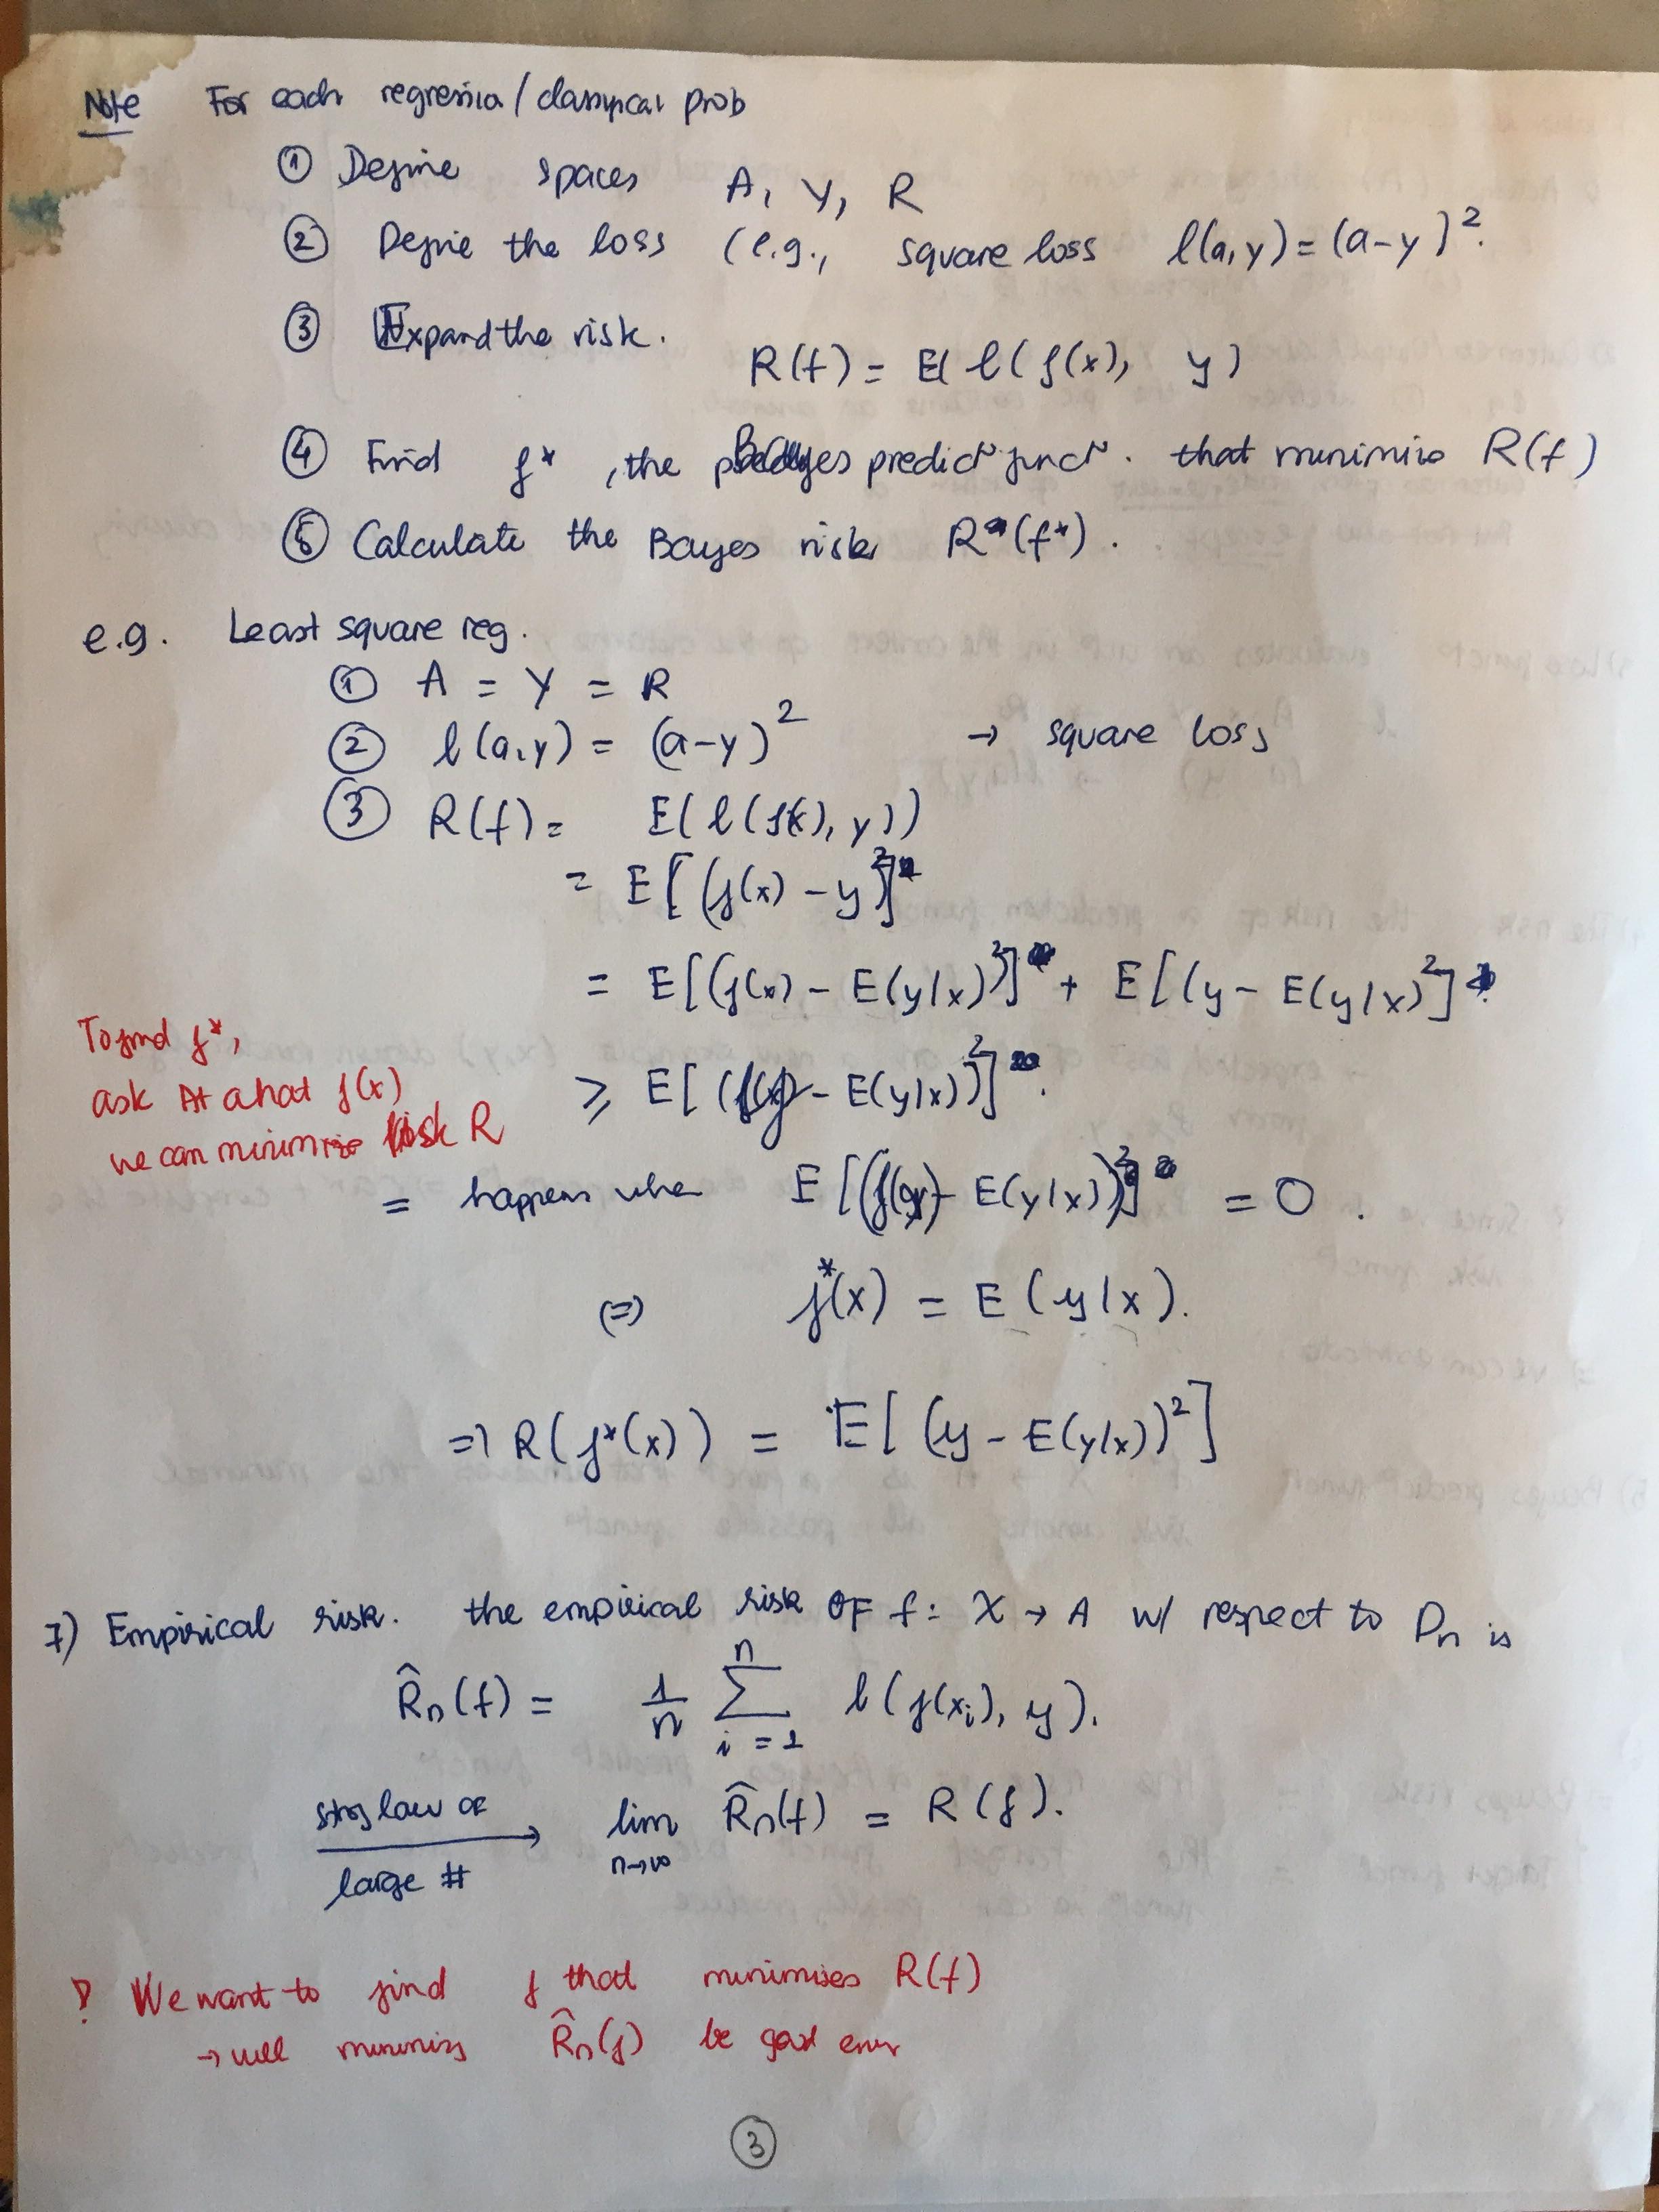 Note For each regression/classifical prob
① Define spaces A, Y, R
② Define the loss (e.g., square loss l(a,y) = (a-y)².
③ Expand the risk.
R(f) = E( l( f(x), y)
④ Find f*, the Bayes predictᴺ functᴺ. that minimise R(f)
⑤ Calculate the Bayes risk R(f*).
e.g. Least square reg.
① A = Y = R
② l(a,y) = (a-y)² → square loss
③ R(f) = E( l( f(x), y))
= E[(f(x) - y)²]
= E[(f(x) - E(y|x)²] + E[(y - E(y|x)²]
To find f*,
ask At what f(x)
we can minimise risk R
⩾ E[(f(x) - E(y|x))²].
= happens when E[(f(x) - E(y|x))²] = 0.
(=) f*(x) = E(y|x).
=) R(f*(x)) = E[(y - E(y|x))²]
7) Empirical risk. the empirical risk OF f: X → A w/ respect to Dn is
R̂n(f) = 1/n ∑ i=1 n l(f(xi), y).
strg law of
large #
→ lim n→∞ R̂n(f) = R(f).
We want to find f that minimises R(f)
→ will minimis R̂n(f) be good
③